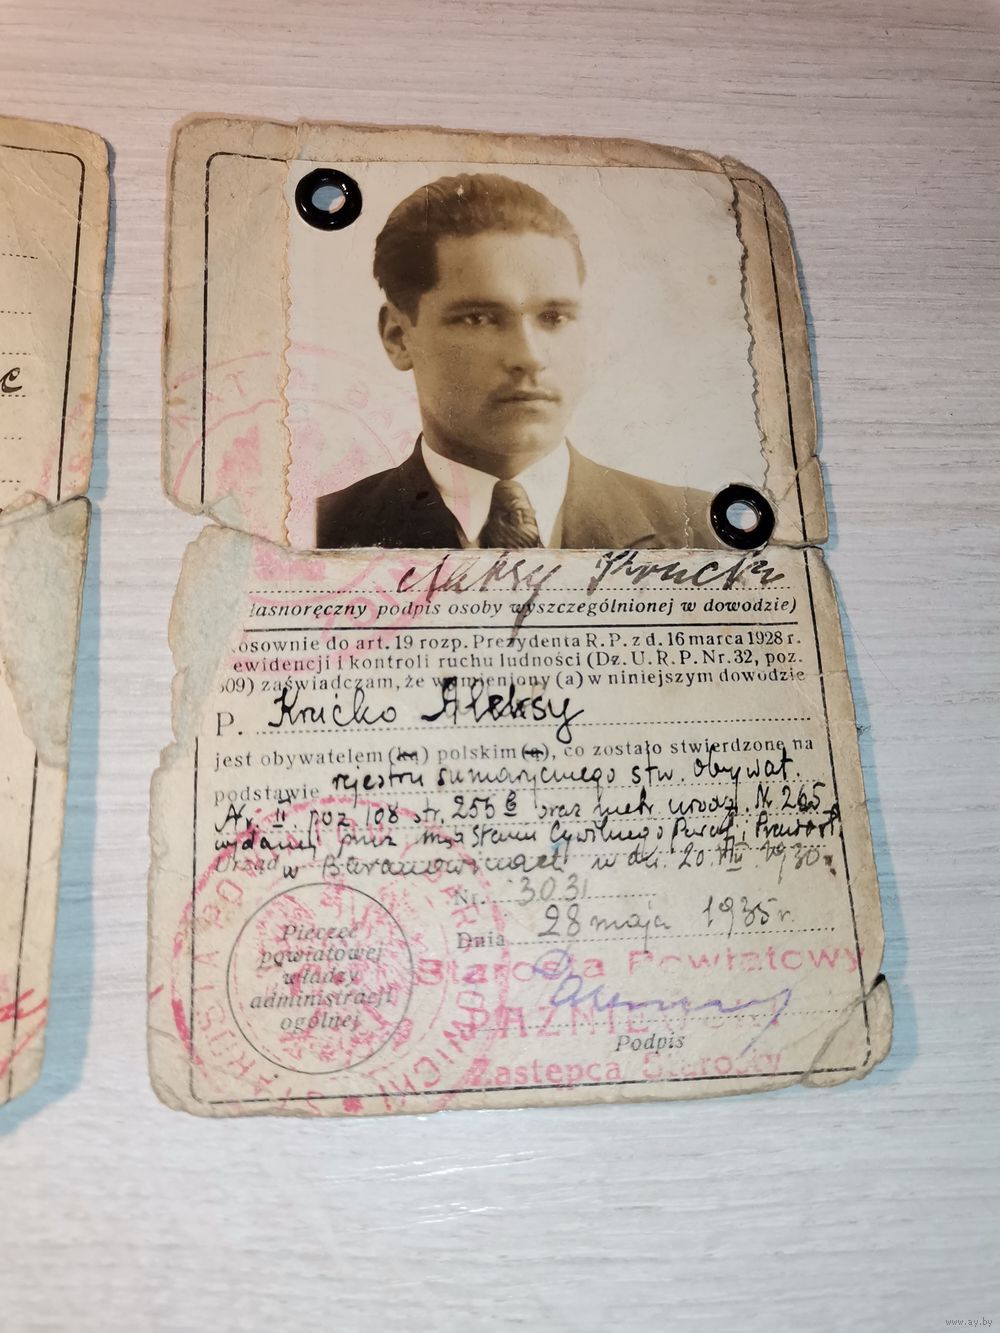 c
Aleksy Krućko
łasnoręczny podpis osoby wyszczególnionej w dowodzie)
osownie do art. 19 rozp. Prezydenta R. P. z d. 16 marca 1928 r.
ewidencji i kontroli ruchu ludności (Dz. U. R. P. Nr. 32, poz.
309) zaświadczam, że wymieniony (a) w niniejszym dowodzie
P. Krućko Aleksy
jest obywatelem (ką) polskim (ą), co zostało stwierdzone na
podstawie rejestru sumarycznego stw. obywat.
Nr. II poz 108 str. 255 oraz metr. urodz. Nr 265
wydanej przez Stanu Cywilnego Paraf. Prawosł.
Urząd w Baranowiczach w dn. 20 VII 1930 r.
Nr. 3031
Dnia 28 maja 1935 r.
Pieczęć
powiatowej
władzy
administracji
ogólnej
STAROSTA PO
Starosta Powiatowy
Podpis
Zastępca Starosty
www.ay.by